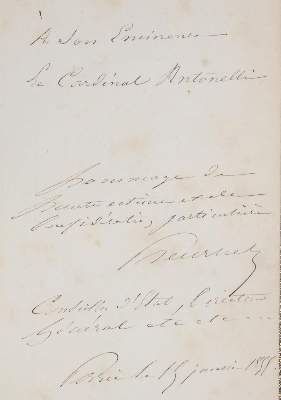 A Son Eminence
Le Cardinal Antonelli
hommage de
haute estime et de
considération particulière
Heurtier
Conseiller d'Etat, Directeur
Général etc etc
Paris le 15 janvier